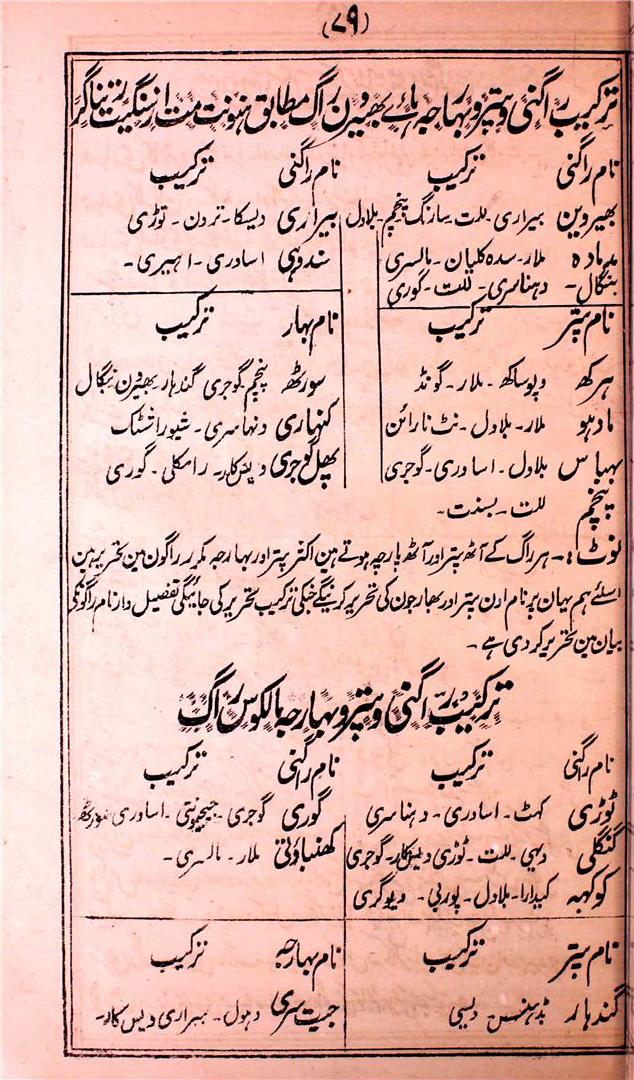 (۷۹)
ترکیب راگنی و پتر و بہارجہ ہاے بھیرون راگ مطابق ہنونت مت از سنگیت رتناگر
نام راگنی ترکیب نام راگنی ترکیب
بھیروین بیراری۔ للت۔ سارنگ پنچم۔ بلاول بیراری دیسکا۔ تردن۔ توڑی
مدمادہ ملار۔ سدہ کلیان۔ مالسری سندوہی اساوری۔ اہیری۔
بنگال۔ دہناسری۔ للت۔ گوری
نام پتر ترکیب نام بہار ترکیب
ہرکھ دیوساکھ۔ ملار۔ گونڈ سورٹھ پنچم گوجری گندہار بھیرون بنگال
مادہو ملار۔ بلاول۔ نٹ نارائن کنہاری دنہاسری۔ شیوراشٹک
بہباس بلاول۔ اساوری۔ گوجری پھل گوجری دیسکار۔ رامکلی۔ گوری
پنچم للت۔ بسنت۔
نوٹ:۔ ہر راگ کے آٹھ پتر اور آٹھ بارچہ ہوتے ہین اکثر پتر اور بہارجہ مکرر راگون مین تحریر ہین
اسلئے ہم یہان پر نام اون پتر اور بھارجون کی تحریر کرینگے جنکی ترکیب تحریر کی جائیگی تفصیل وار نام راگونکی
بیان مین تحریر کر دی ہے۔
ترکیب راگنی و پتر و بہارجہ مالکوس راگ
نام راگنی ترکیب نام راگنی ترکیب
ٹوڑی کہٹ۔ اساوری۔ دہناسری گوری گوجری۔ جیجیونتی۔ اساوری سورٹھ
گنکلی دیسی۔ للت۔ ٹوڑی دیسکار۔ گوجری کھنباوتی ملار۔ مالسری۔
کوکہبہ کیدارا۔ بلاول۔ پوربی۔ دیوگری
نام پتر ترکیب نام بہارجہ ترکیب
گندہار دیسی جیت سری دہول۔ بہراری دیسکار۔